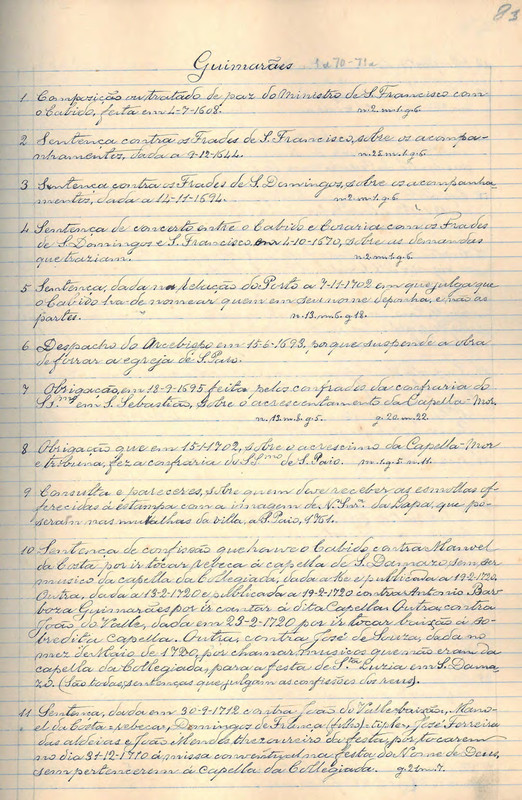 83
Guimarães
1 Composição ou tratado de paz do Ministro de S. Francisco com
o Cabido, feita em 4-7-1608. n. 2. m. 1. g. 6
2 Sentença contra os Frades de S. Francisco, sobre os acompa-
nhamentos, dada a 9-12-1644. m. 1. g. 6.
3 Sentença contra os Frades de S. Domingos, sobre os acompanha-
mentos, dada a 14-11-1694. n. 2 m. 1. g. 6
4 Sentença de concerto entre o Cabido e Coraria com os Frades
de S. Domingos e S. Francisco, em 4-10-1670, sobre as demandas
que traziam. n. 2 m. 1. g. 6.
5 Sentença, dada na Relação do Porto a 7-11-1702 em que julga que
o Cabido ha de nomear quem em seu nome deponha, e não as
partes. n. 13. m. 6. g. 18.
6 Despacho do Arcebispo em 15-6-1693, porque suspende a obra
de forrar a egreja de S. Paio.
7 Obrigação, em 18-9-1695 feita pelos confrades da confraria do
SS.mo em S. Sebastião, sobre o acrescentamento da Capella-Mor.
n. 13. m. 8. g. 5. g. 20. m. 22.
8 Obrigação que em 15-1-1702, sobre o acrescimo da Capella-Mor
e tribuna, fez a confraria do SS.mo de S. Paio. m. 1. g. 5 m. 11.
9 Consulta e pareceres, sobre quem deve receber as esmollas of-
ferecidas á estampa com a imagem de N. Snr.ª da Lapa, que po-
seram nas muralhas da villa, a S. Paio, 1751.
10 Sentença de confissão que houve o Cabido contra Manoel
da Costa por ir tocar rebeca á capella de S. Damazo, sem ser
musico da capella da Collegiada, dada a he e publicada a 19-2-1720.
Outra, dada a 13-2-1720 e publicada a 19-2-1720 contra Antonio Bar-
boza Guimarães por ir cantar á dita Capella. Outra, contra
João do Valle, dada em 23-2-1720 por ir tocar baixão á so-
bredita capella. Outra, contra José de Souza, dada no
mez de Maio de 1720, por chamar musicos que não eram da
capella da Collegiada, para a festa de S.ta Luzia em S. Dama-
zo. (São todas, sentenças que julgam as confissões dos reus).
11 Sentença, dada em 30-9-1712 contra João do Valle-baixão, Mano-
el da Costa-rebecas, Domingos de França (filho)-tiple, José Ferreira
das aldeias e João Mendes thezoureiro da festa, por tocarem
no dia 31-12-1710 á missa conventual na festa do Nome de Deus,
sem pertencerem á capella da Collegiada. g. 21 m. 7.